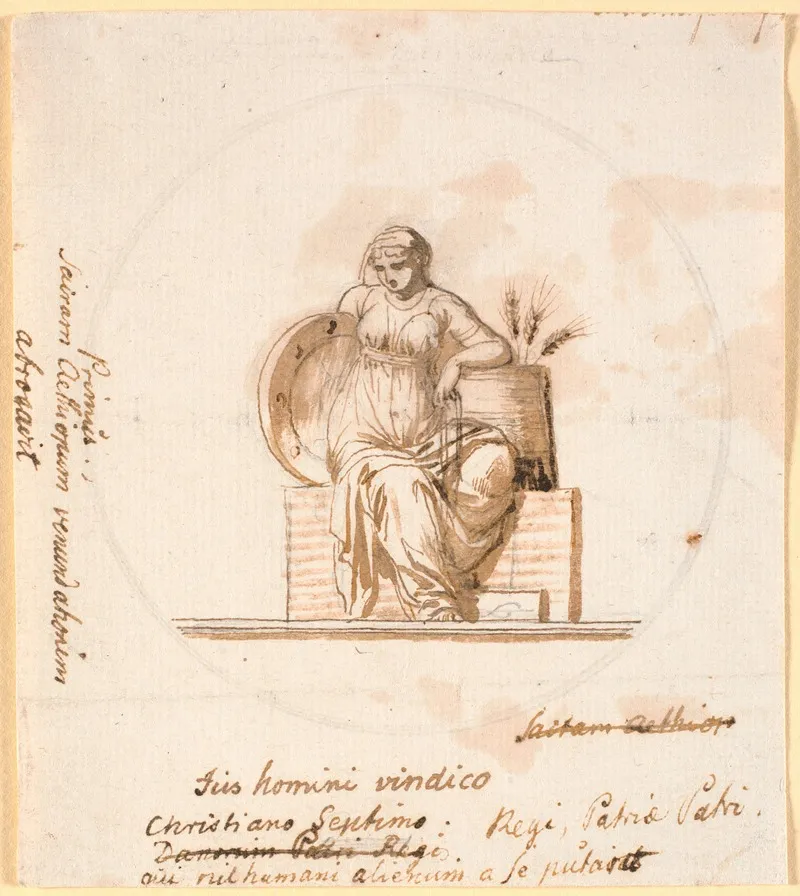 Primus
sairam Aethiopum venundationem
abrogavit
sairam Aethiop
Jus homini vindico
Christiano Septimo. Regi, Patriæ Patri.
Danorum Patri Regi.
qui nil humani alienum a se putavit